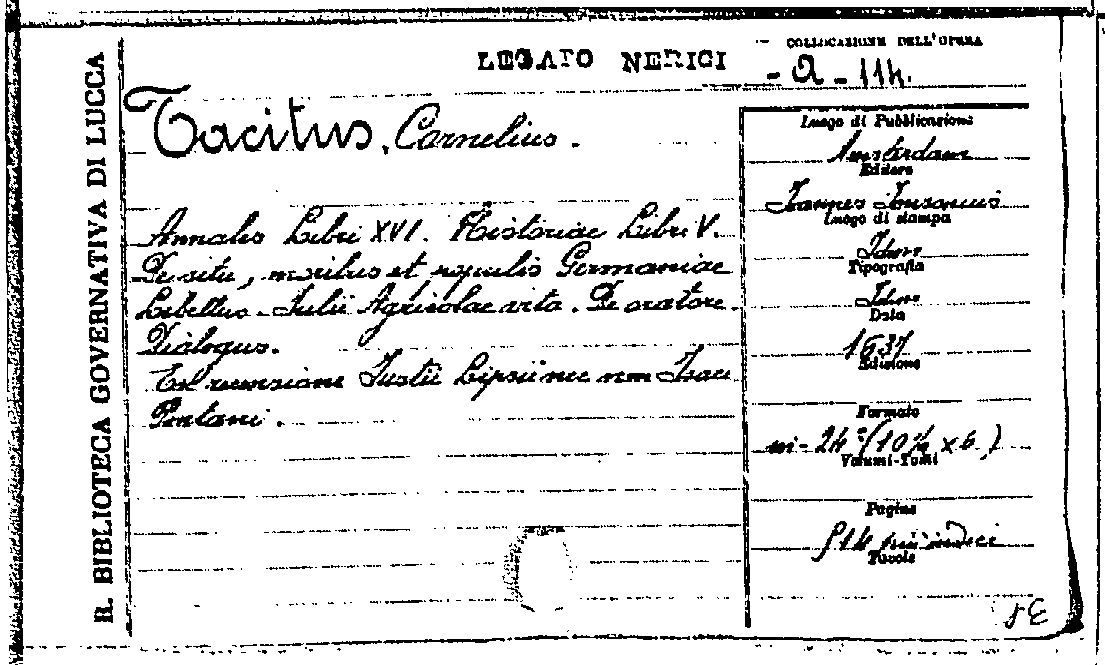 R. BIBLIOTECA GOVERNATIVA DI LUCCA
LEGATO NERICI
COLLOCAZIONE DELL'OPERA
- a - 114.
Tacitus, Cornelius.
Annales Libri XVI. Historiae Libri V.
De situ, moribus et populis Germaniae
Libellus. Julii Agricolae vita. De oratore
Dialogus.
Ex recensione Justii Lipsii nec non Isaci
Pontani.
Luogo di Pubblicazione
Amsterdam
Editore
Joannes Jansonius
Luogo di stampa
Idem
Tipografia
Idem
Data
1637
Edizione
Formato
in-24° (10½ x 6)
Volumi-Tomi
Pagine
514 più indici
Tavole